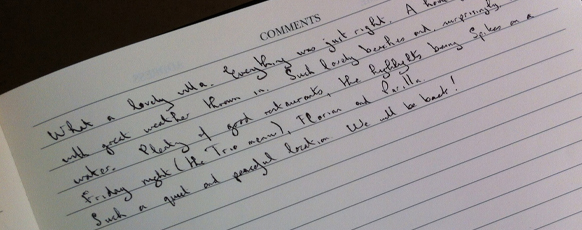 COMMENTS
What a lovely villa. Everything was just right. A
with great weather thrown in. Such lovely beaches and, surprisingly,
water. Plenty of good restaurants, the highlights being Spikes on a
Friday night (the Trio menu), Florian and Parilla.
Such a quiet and peaceful location. We will be back!